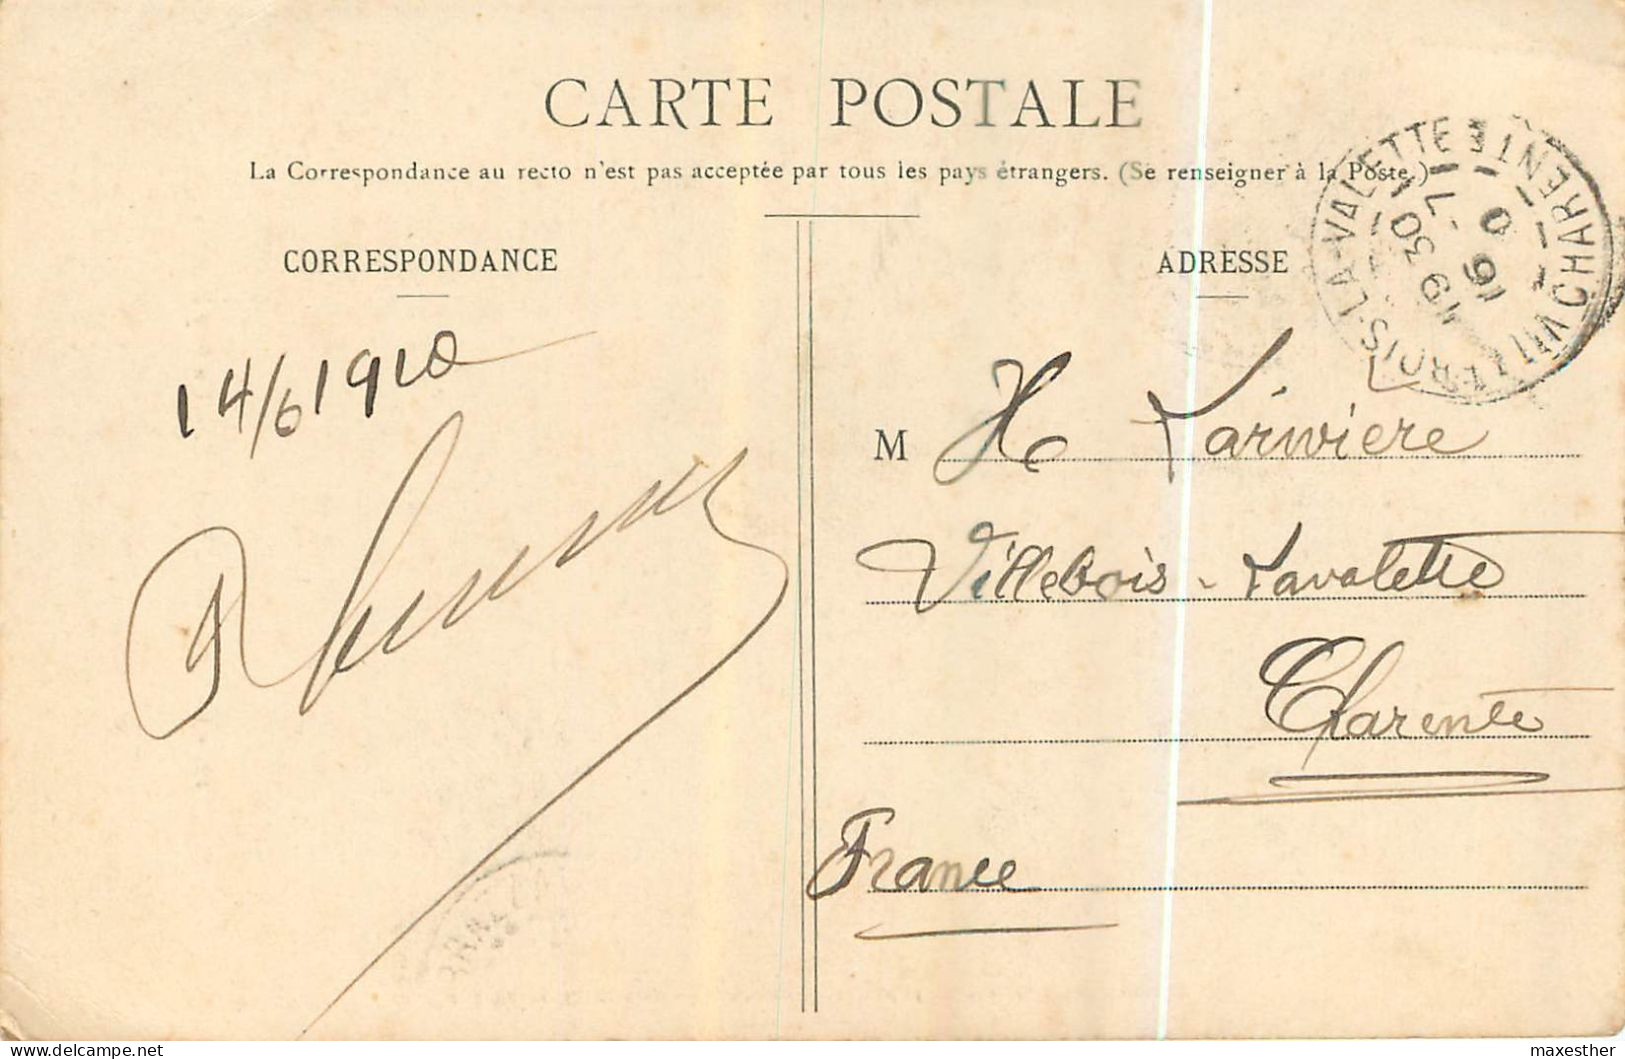 CARTE POSTALE
La Correspondance au recto n'est pas acceptée par tous les pays étrangers. (Se renseigner à la Poste.)
CORRESPONDANCE
ADRESSE
14/6 1910
M H Larivière
Villebois - Lavalette
Charente
France
VILLEBOIS-LA-VALETTE
CHARENTE
19 30
maxesther